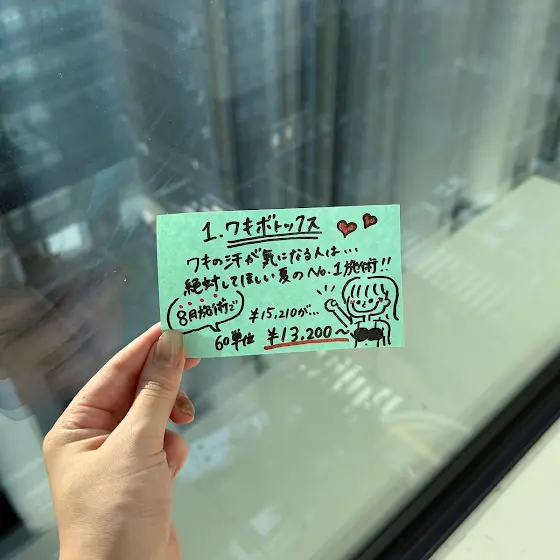 1.ワキボトックス
ワキの汗が気になる人は…
絶対してほしい夏のNo.1施術!!
8月施術で
¥15,210が…
60単位 ¥13,200〜